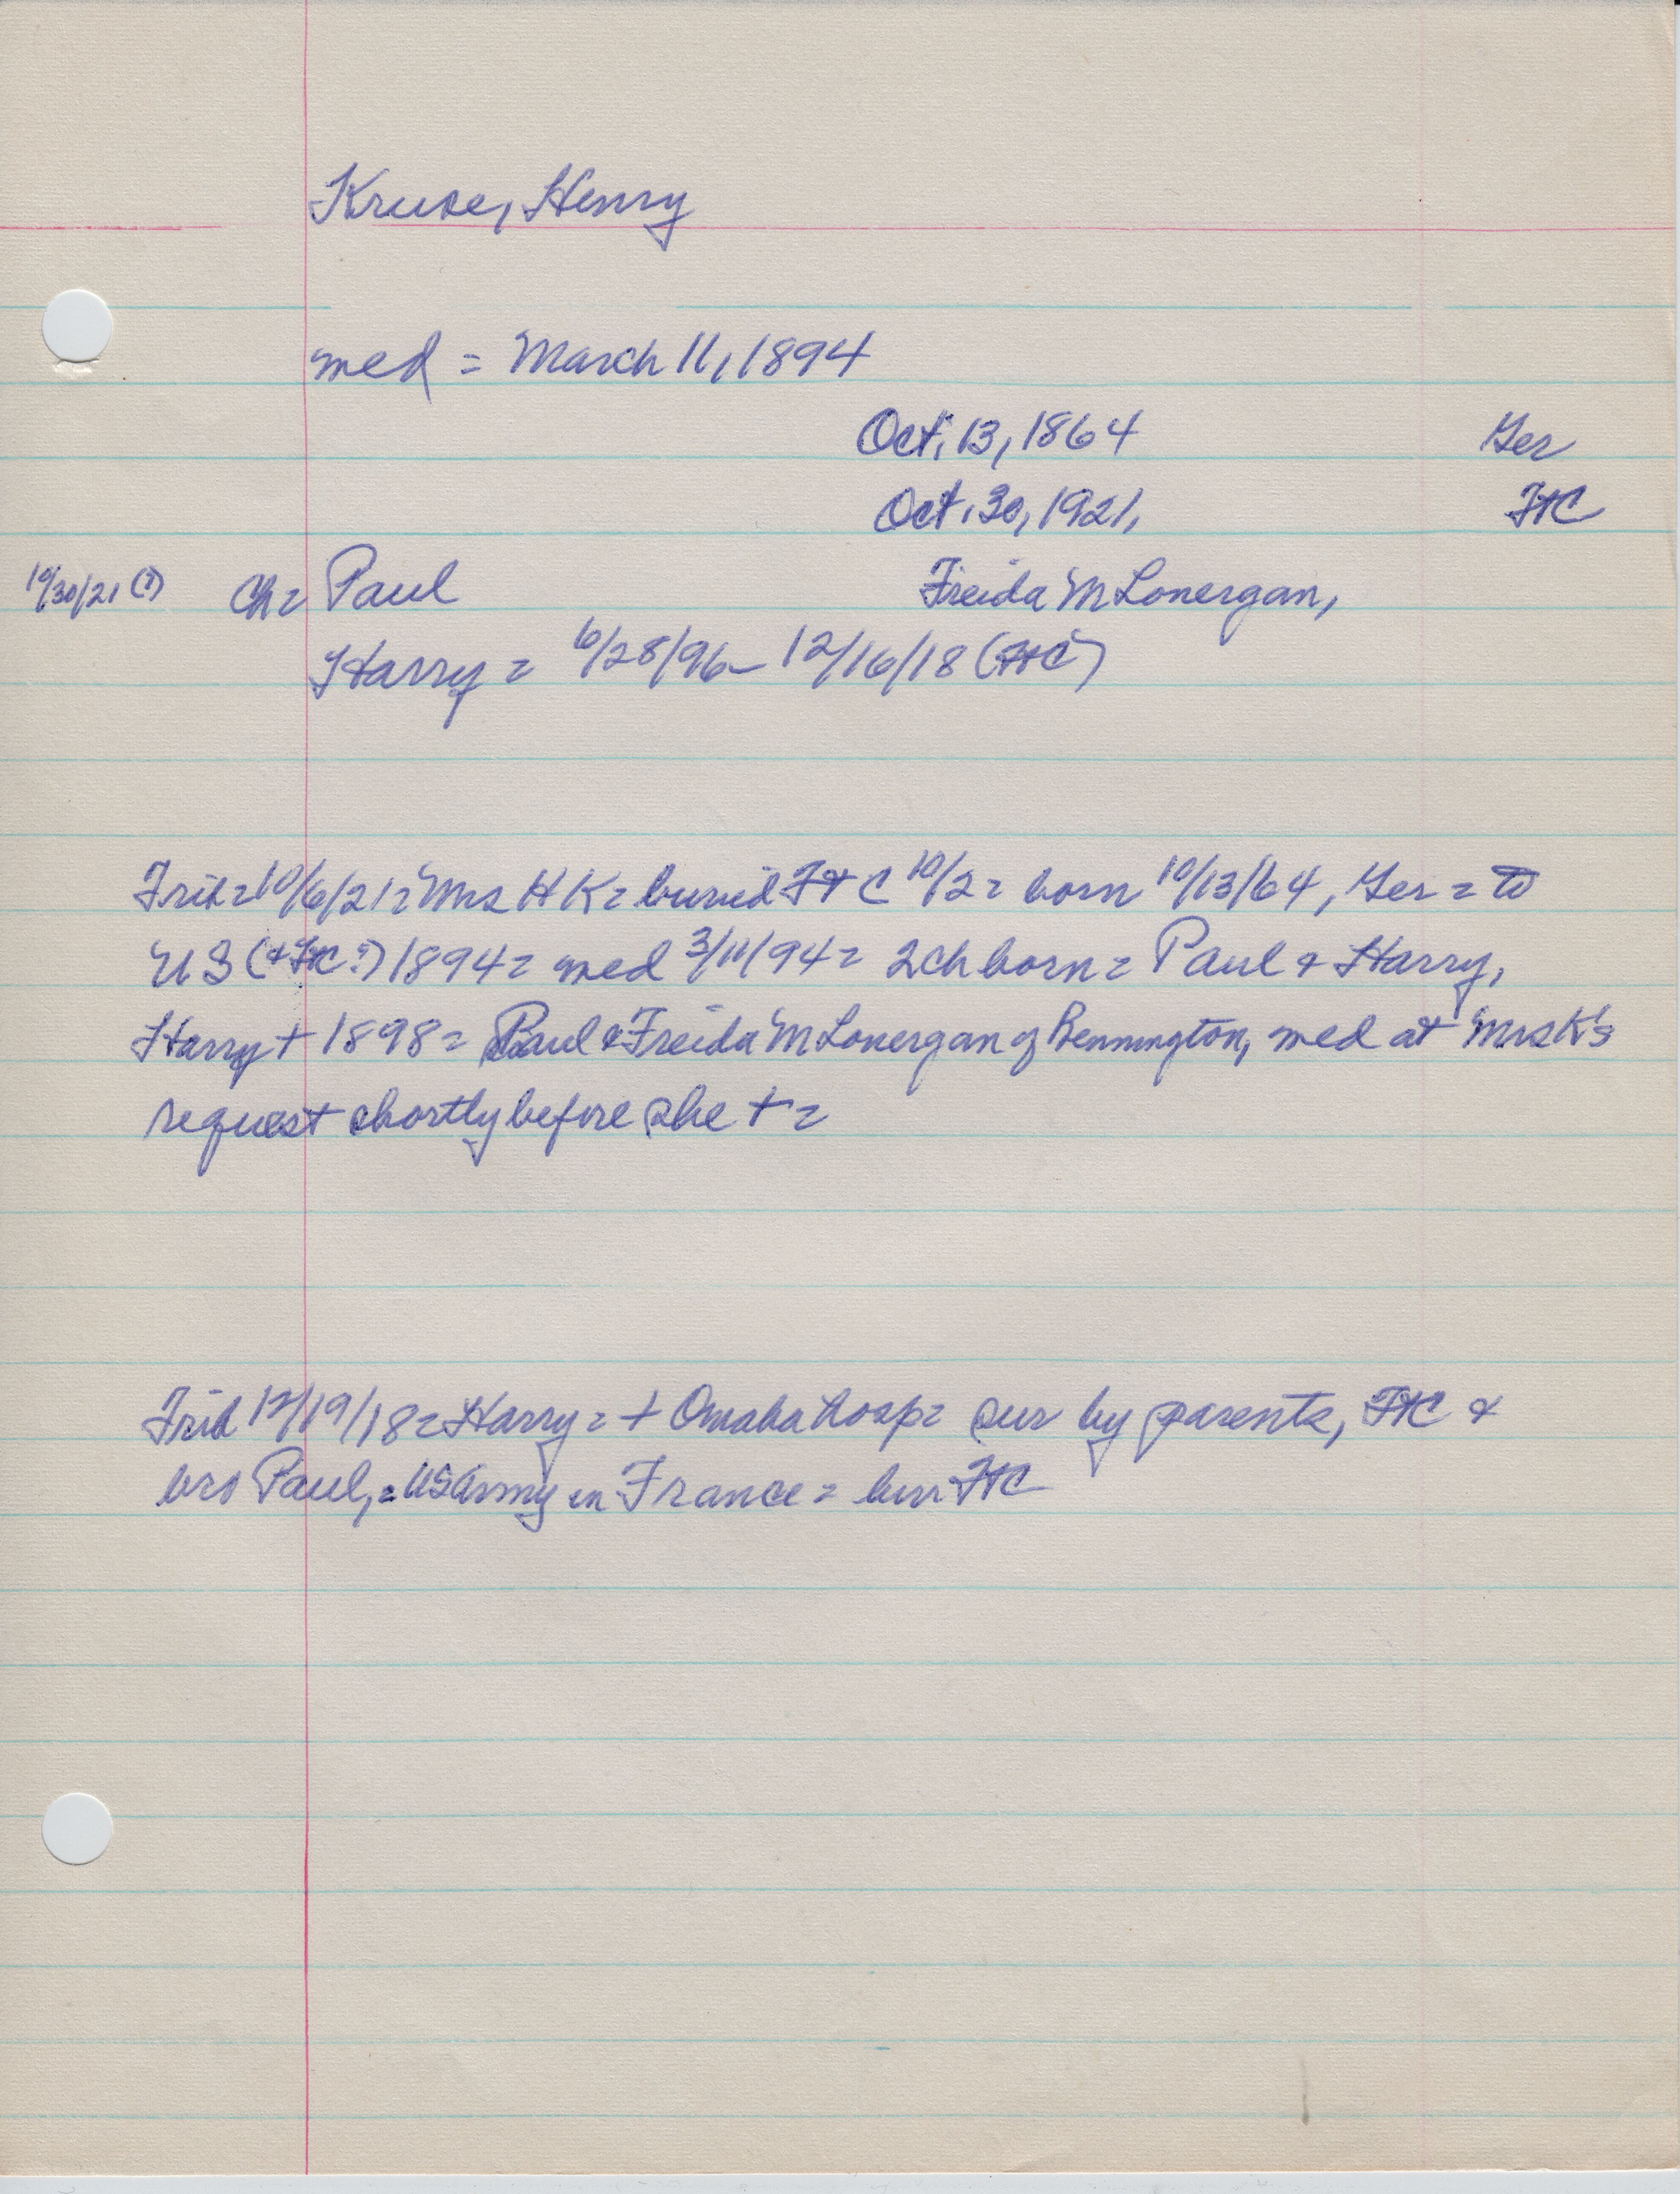 Kruse, Henry
med = March 11, 1894
Oct. 13, 1864 Ger
Oct. 30, 1921, FtC
10/30/21 (?) Ch = Paul Freida M Lonergan,
Harry = 6/28/96 – 12/16/18 (FtC)
Trib = 10/6/21 = Mrs H K = buried Ft C 10/2 = born 10/13/64, Ger = to
US (+ FtC?) 1894 = med 3/11/94 = 2 ch born = Paul & Harry,
Harry + 1898 = Paul & Freida M Lonergan of Bennington, med at Mrs K's
request shortly before she + =
Trib 12/19/18 = Harry = + Omaha hosp = sur by parents, FtC &
bro Paul, = US Army in France = bur FtC